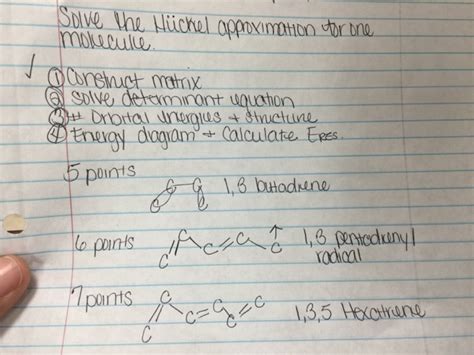 Solve the Hückel approximation for one
molecule.
① Construct matrix
② Solve determinant equation
③ # Orbital energies + structure
④ Energy diagram + Calculate Eres
5 points
C C C C
1,3 butadiene
6 points
C C C C C
1,3 pentadienyl
radical
7 points
C C C C C C
1,3,5 Hexatriene